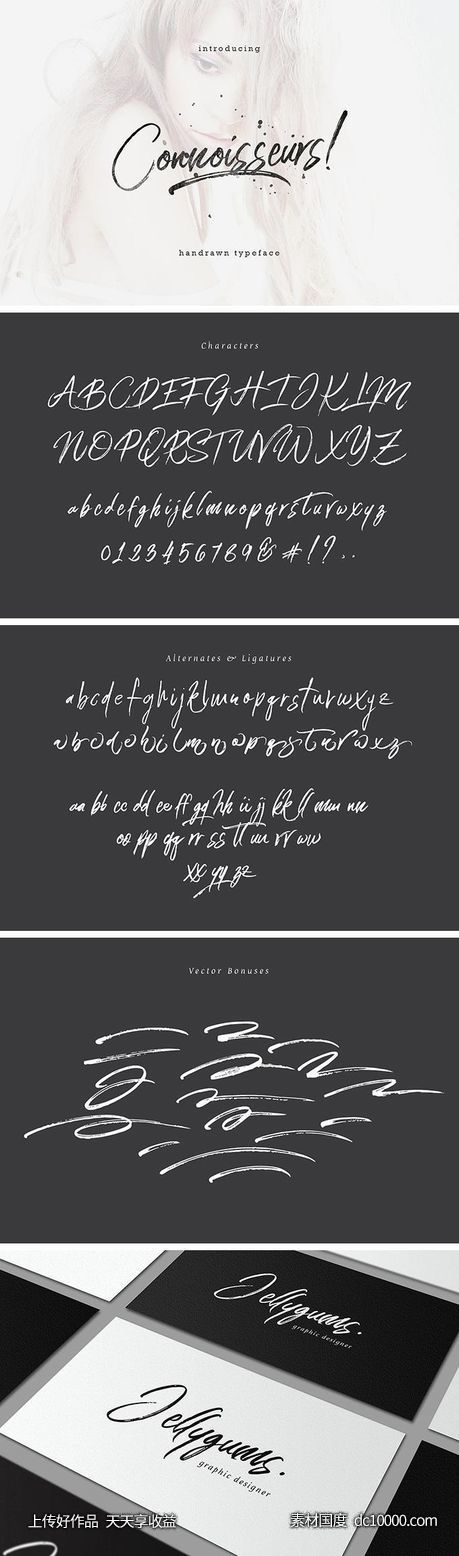 introducing
Connoisseurs!
handrawn typeface
Characters
ABCDEFGHIJKLM
NOPQRSTUVWXYZ
abcdefghijklmnopqrstuvwxyz
0123456789& #!?..
Alternates & Ligatures
abcdefghijklmnopqrstuvwxyz
aa bb cc dd ee ff gg hh ii jj kk ll mm nn
oo pp qq rr ss tt uu vv ww
xx yy zz
Vector Bonuses
Jellygums.
graphic designer
Jellygums.
graphic designer
上传好作品 天天享收益
素材国度 dc10000.com